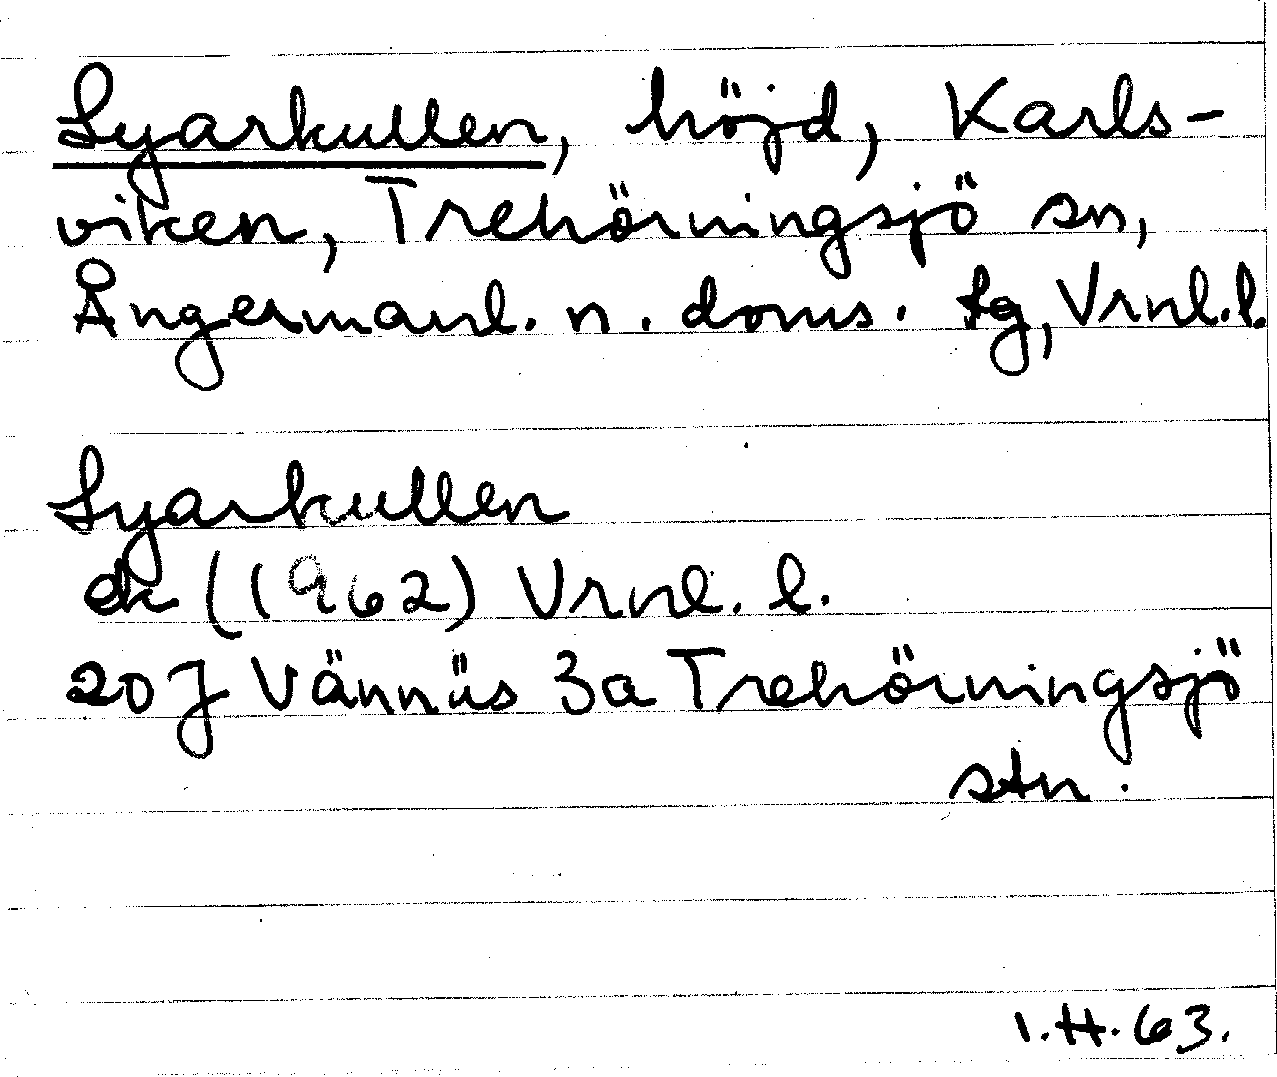 Lyarkullen, höjd, Karls-
viken, Trehörningsjö sn,
Ångermanl. n. doms. tg, Vrnl. l.
Lyarkullen
ek (1962) Vrnl. l.
20 J Vännäs 3a Trehörningsjö
stn.
1.H.63.